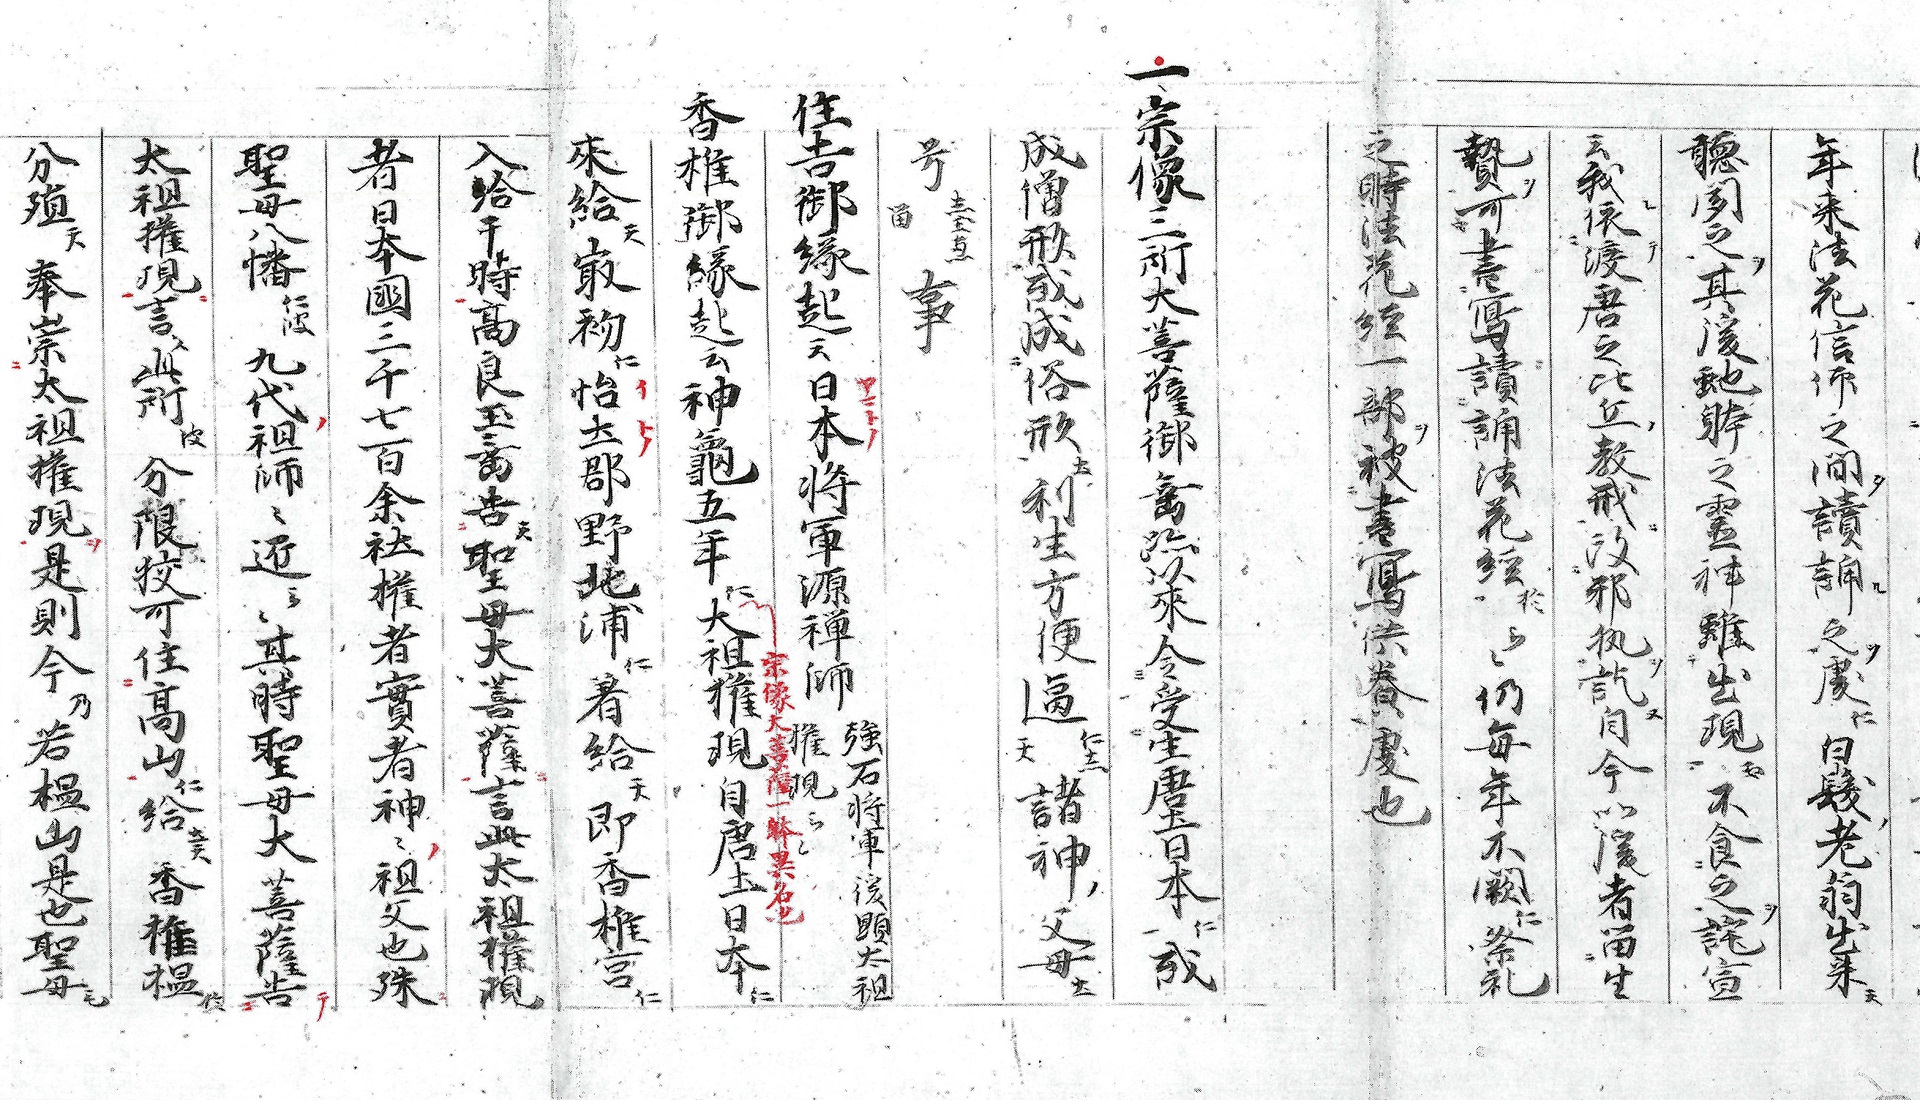 年来法花信仰之間讀誦之處仁白髮老翁出来天
聴聞之其後蛇躰之霊神雖出現不食之詫宣
云我依渡唐之比丘教戒改邪執訖自今以後者留生
贄可書寫讀誦法花経於仍毎年不闕仁祭礼
之時法花経一部被書寫供養處也
一宗像三所大菩薩御垂跡以来令受生唐土日本仁或
成僧形或成俗形土利生方便逼天仁毛諸神父母土
号 留 事
住吉御縁起云日本将軍源禅師強石将軍後顕太祖権現
香椎御縁起云神龜五年仁大祖権現自唐土日本仁
宗像大菩薩一躰異名也
來給天最初仁怡土郡野北浦仁着給天即香椎宮仁
入給于時高良玉垂告天聖母大菩薩言此太祖権現
者日本國三千七百余社権者實者神ミ祖父也殊
聖母八幡仁波九代祖師ミ近其時聖母大菩薩告
太祖権現言此所波分限狡可住高山仁給香椎榲
分殞天奉崇太祖権現是則今乃若榲山是也聖母